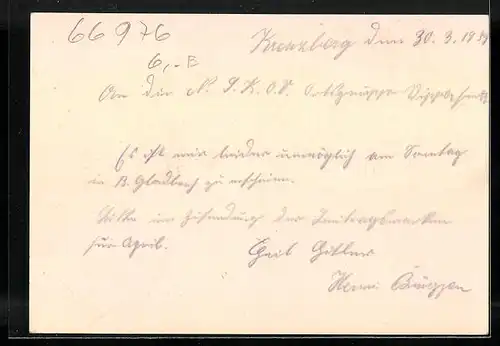 66976
6,-B
Kreuzberg den 30.3.1939
An die N.S.K.O.V. Ortsgruppe
Es ist mir leider unmöglich am Sonntag
in B. Gladbach zu erscheinen.
Bitte um Zusendung der Beitragsmarken
für April. Heil Hitler
Henri Brüggen